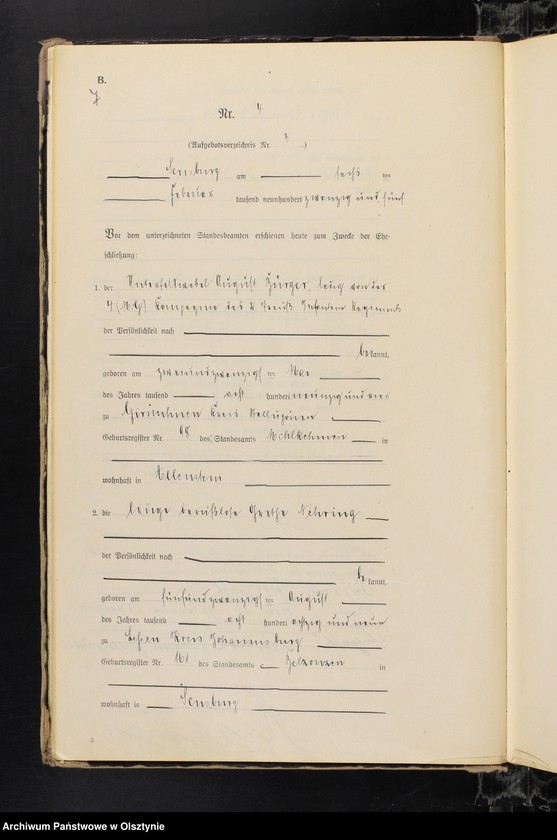 B.
Nr. 4
(Aufgebotsverzeichnis Nr. 3)
Sensburg am sechs ten
Februar tausend neunhundert zwanzig und fünf
Vor dem unterzeichneten Standesbeamten erschienen heute zum Zwecke der Ehe-
schließung:
1. der Unterfeldwebel August Zürger, ledig von der
4 (M.G) Kompagnie des 2 Preuß Infanterie Regiments
der Persönlichkeit nach
bekannt,
geboren am zweiundzwanzigsten Mai
des Jahres tausend acht hundert neunzig und
zu Kreis Stallupönen
Geburtsregister Nr. 68 des Standesamts Mehlkehmen in
wohnhaft in Allenstein
2. die ledige berufslose Grethe Nehring
der Persönlichkeit nach
bekannt,
geboren am fünfundzwanzigsten August
des Jahres tausend acht hundert achtzig und neun
zu Kreis Johannisburg
Geburtsregister Nr. 161 des Standesamts in
wohnhaft in Sensburg
Archiwum Państwowe w Olsztynie